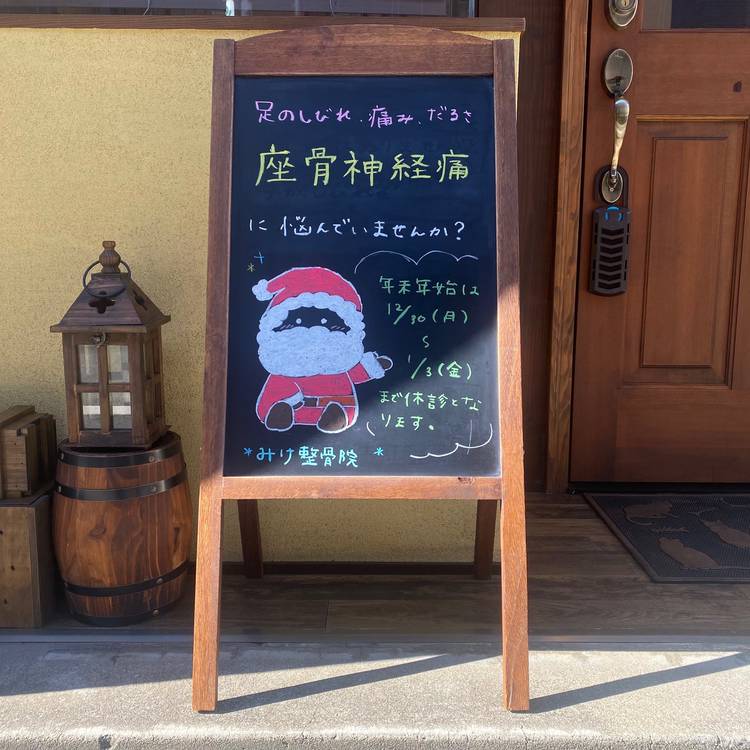 足のしびれ、痛み、だるさ
座骨神経痛
に悩んでいませんか？
年末年始は
12/30(月)
〜
1/3(金)
まで休診とな
ります。
*みけ整骨院*